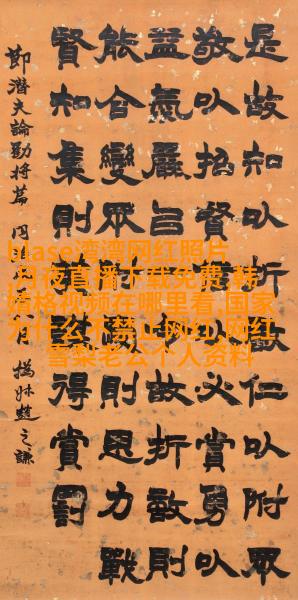 是故知㠯折敵仁㠯附眾
敬㠯招賢㠯必賞勇㠯
益氣嚴㠯故折敵則
能合變眾思力戰
賢知集則得賞罰
節潛夫論勸將篇
撝叔趙之謙
blase湾湾网红照片
,月夜直播下载免费,韩
婧格视频在哪里看,国家
为什么不禁止网红,网红
雪梨老公个人资料